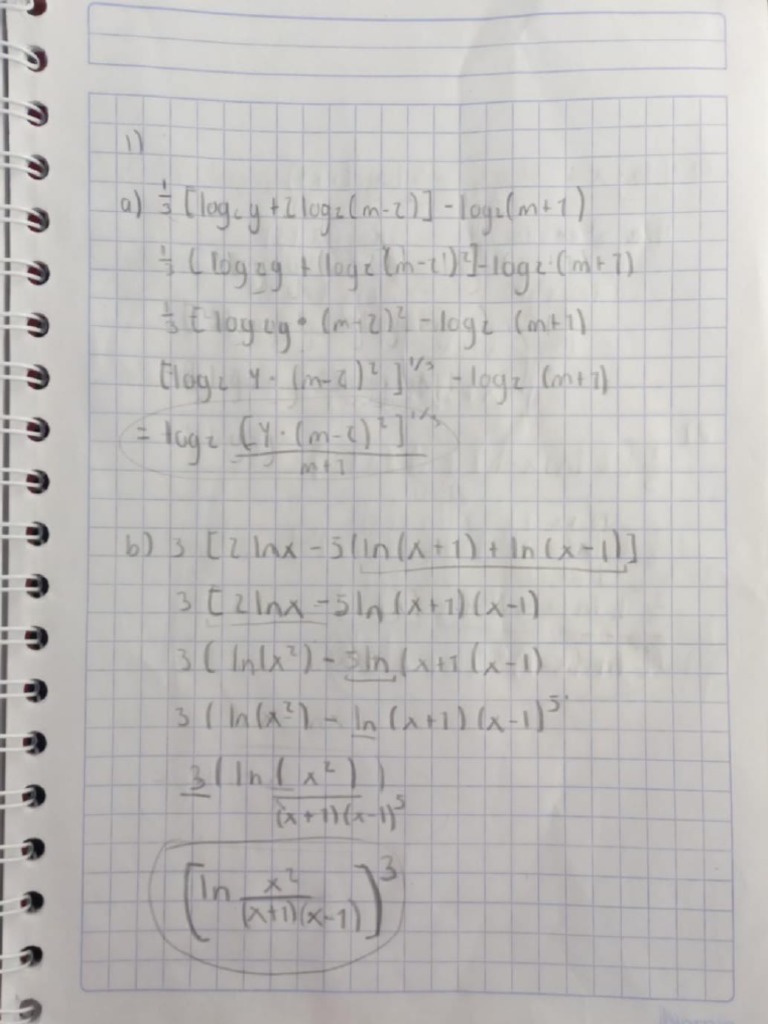 1)
a) 1/3 [log₂y + 2log₂(m-2)] - log₂(m+1)
1/3 (log₂y + (log₂(m-2)²] - log₂·(m+1)
1/3 [log₂y • (m-2)² - log₂ (m+1)
[log₂ y · (m-2)²]^1/3 - log₂ (m+1)
= log₂ [y · (m-2)²]^1/3 / m+1
b) 3 [2lnx - 5(ln(x+1) + ln(x-1)]
3 [2lnx - 5ln(x+1)(x-1)
3 (ln(x²) - 5ln(x+1(x-1)
3 (ln(x²) - ln(x+1)(x-1)⁵
3 (ln (x²)) / (x+1)(x-1)⁵
[ln x² / (x+1)(x-1)]³